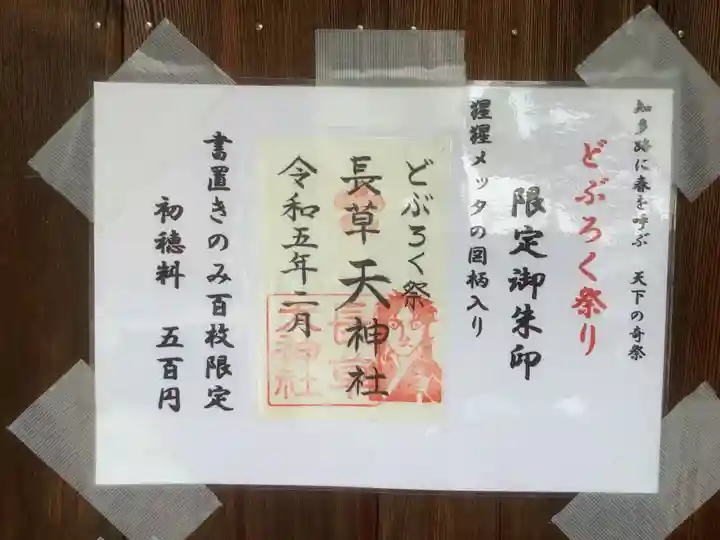 知多路に春を呼ぶ 天下の奇祭
どぶろく祭り
限定御朱印
猩猩メッタの図柄入り
どぶろく祭
長草天神社
令和五年二月
長草
天神社
書置きのみ百枚限定
初穂料 五百円